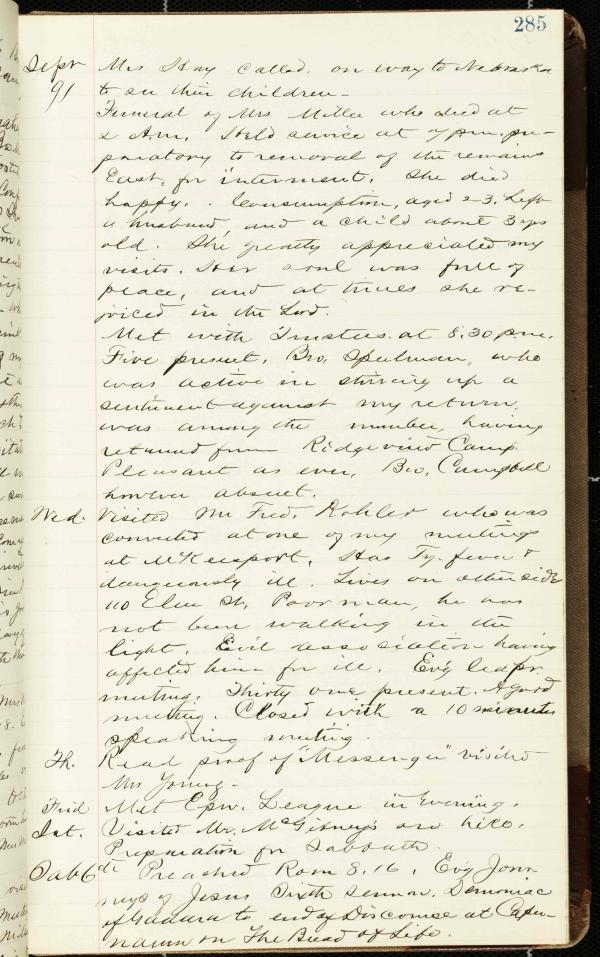 285
Sept Mrs Hay called. on way to Nebraska
91 to see their children -
Funeral of Mrs Miller who died at
2 A.m. Held service at 7 p.m. pre-
paratory to removal of the remains
East, for interment. She died
happy. Consumption, aged 23. Left
a husband, and a child about 3 yrs
old. She greatly appreciated my
visits. Her soul was full of
peace, and at times she re-
joiced in the Lord.
Met with Trustees at 8.30 p.m.
Five present. Bro. Speelman, who
was active in stirring up a
sentiment against my return,
was among the number, having
returned from Ridgeview Camp.
Pleasant as ever, Bro. Campbell
however absent.
Wed. Visited Mr Fred. Kohler who was
converted at one of my meetings
at McKeesport. Has Ty. fever &
dangerously ill. Lives on other side
110 Elm St. Poor man, he has
not been walking in the
light. Evil association having
affected him for ill. Ev'g led pr.
meeting. Thirty one present. A good
meeting. Closed with a 10 minutes
speaking meeting.
Th. Read proof of "Messenger" visited
Mrs Young.
Frid Met Epw. League in Evening.
Sat. Visited Mr. McGibney's
Preparation for Sabbath.
Sab 6th Preached Rom 8.16. Ev'g Jour-
neys of Jesus Sixth sermon. Demoniac
of Gadara to end of Discourse at Caper-
naum on The Bread of Life.